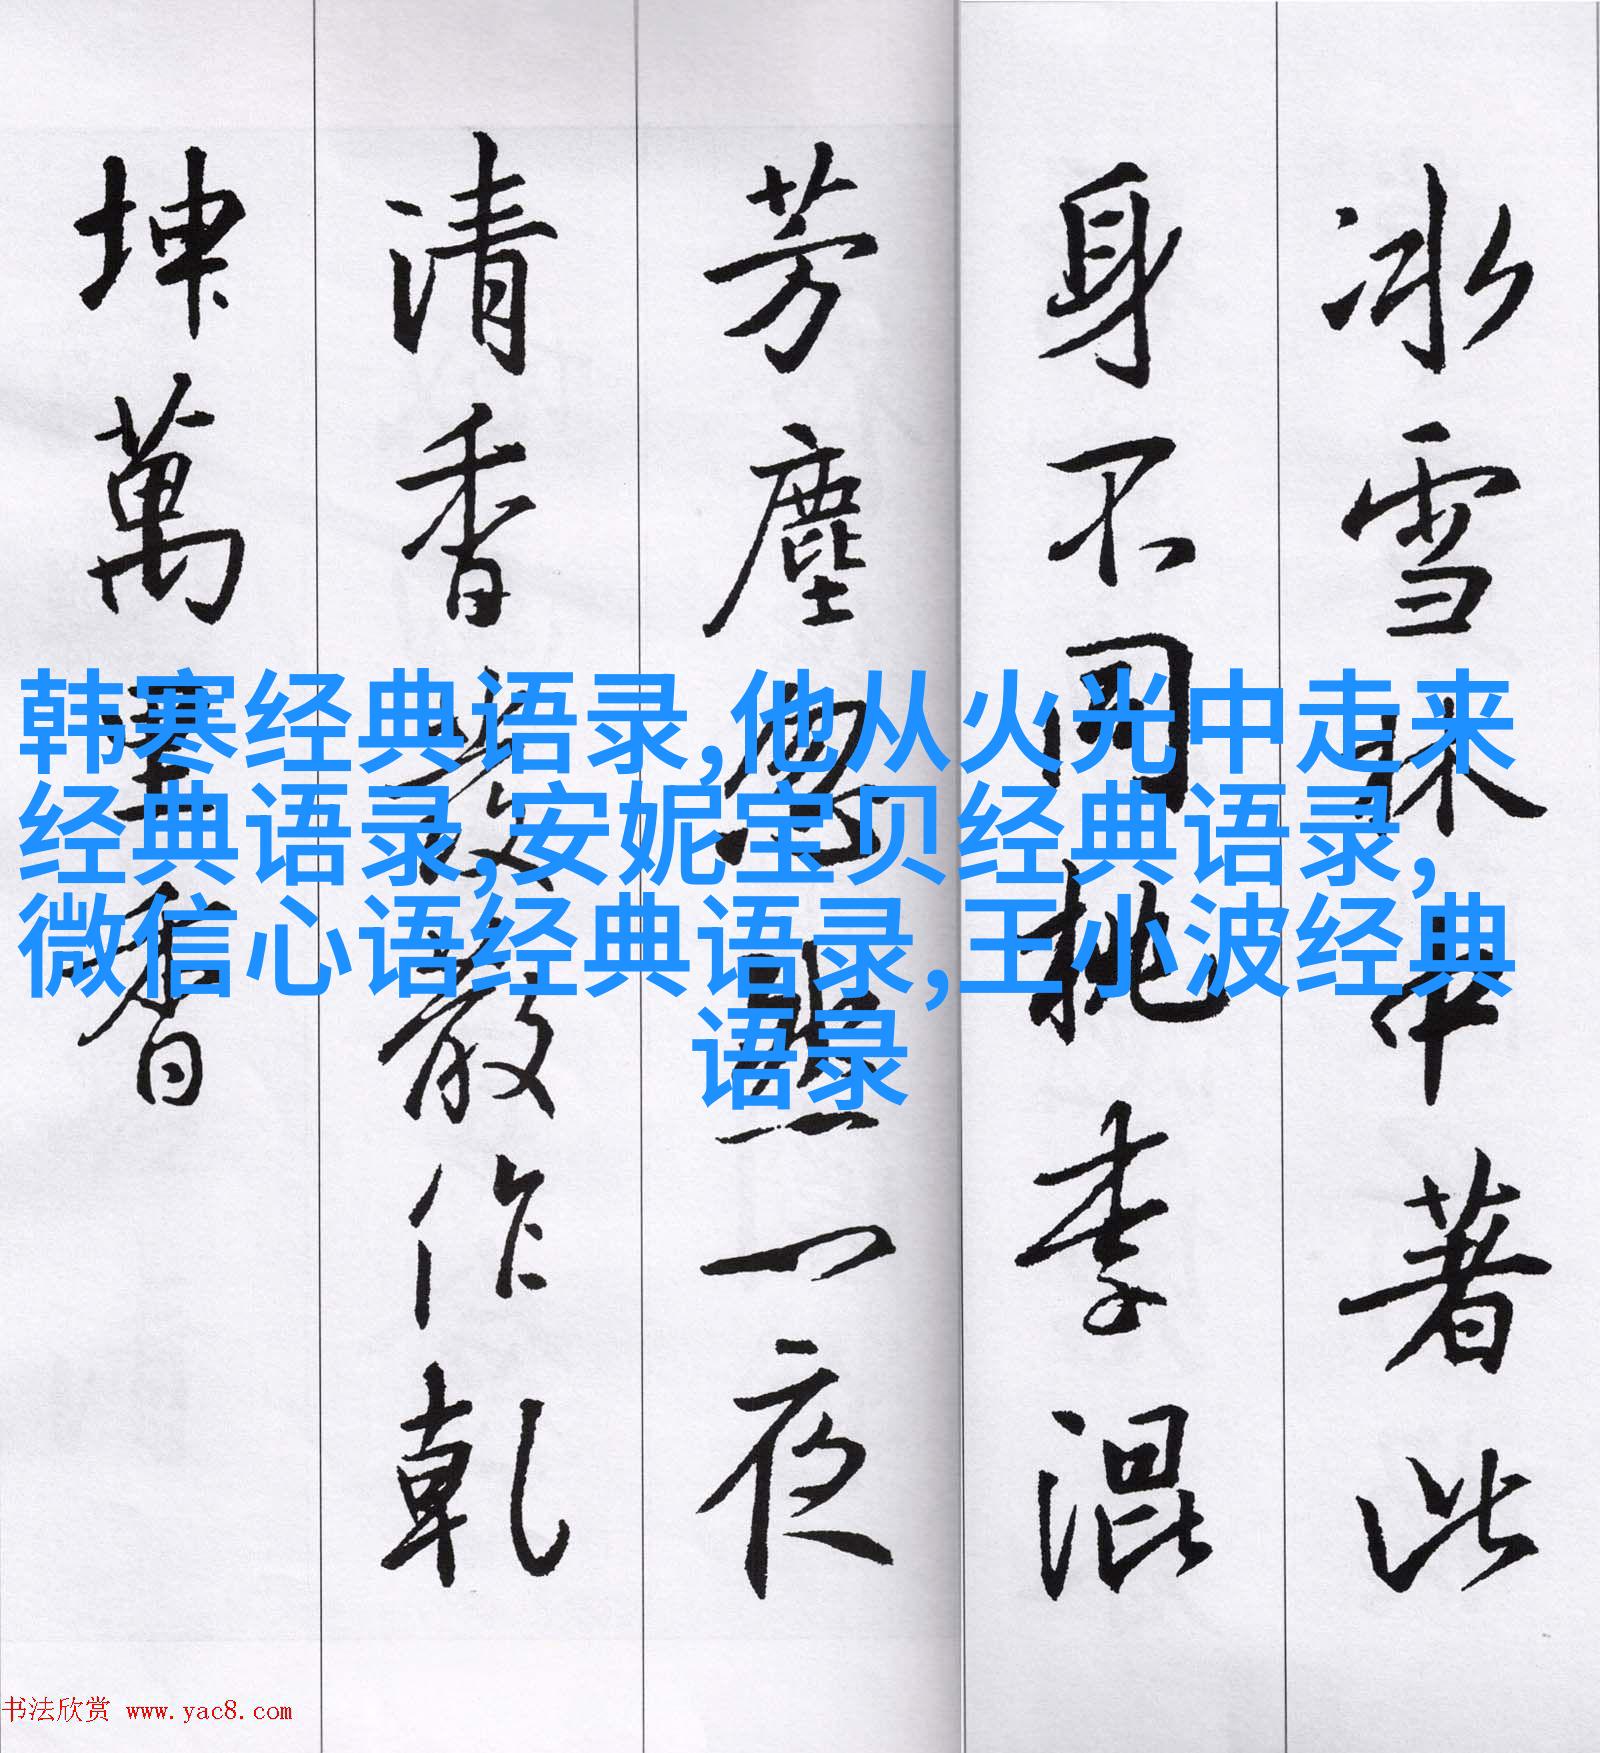 冰雪林中著此
身不同桃李混
芳塵忽然一夜
清香發散作乾
坤萬里香
韩寒经典语录,他从火光中走来
经典语录,安妮宝贝经典语录,
微信心语经典语录,王小波经典
语录
书法欣赏 www.yac8.com